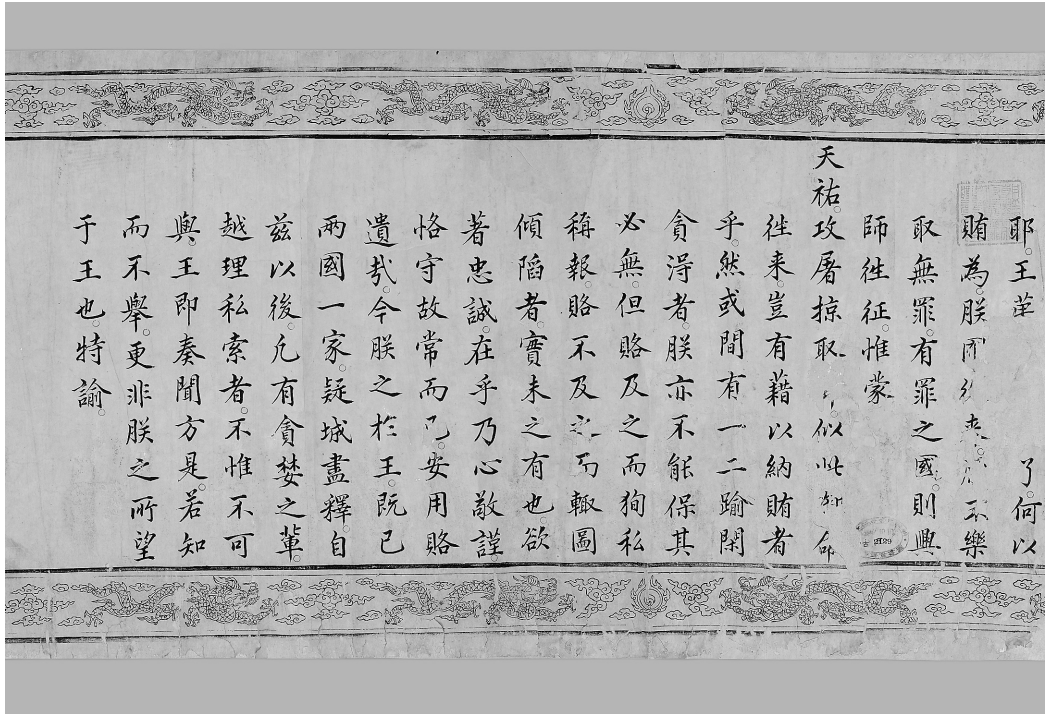 耶。王 了何以
賄為朕 不樂
取無罪。有罪之國。則興
師徃征。惟蒙
天祐。攻屠掠取 似此 命
徃来。豈有藉以納賄者
乎。然或間有一二踰閑
貪淂者。朕亦不能保其
必無。但賂及之而狥私
稱報。賂不及之而輙圖
傾陷者。實未之有也。欲
著忠誠。在乎乃心敬謹
恪守故常而已。安用賂
遺㢤。今朕之扵王。既已
兩國一家。疑城盡釋。自
兹以後。凡有貪婪之輩。
越理私索者。不惟不可
與。王即奏聞方是。若知
而不舉。更非朕之所望
于王也。特諭。
2129